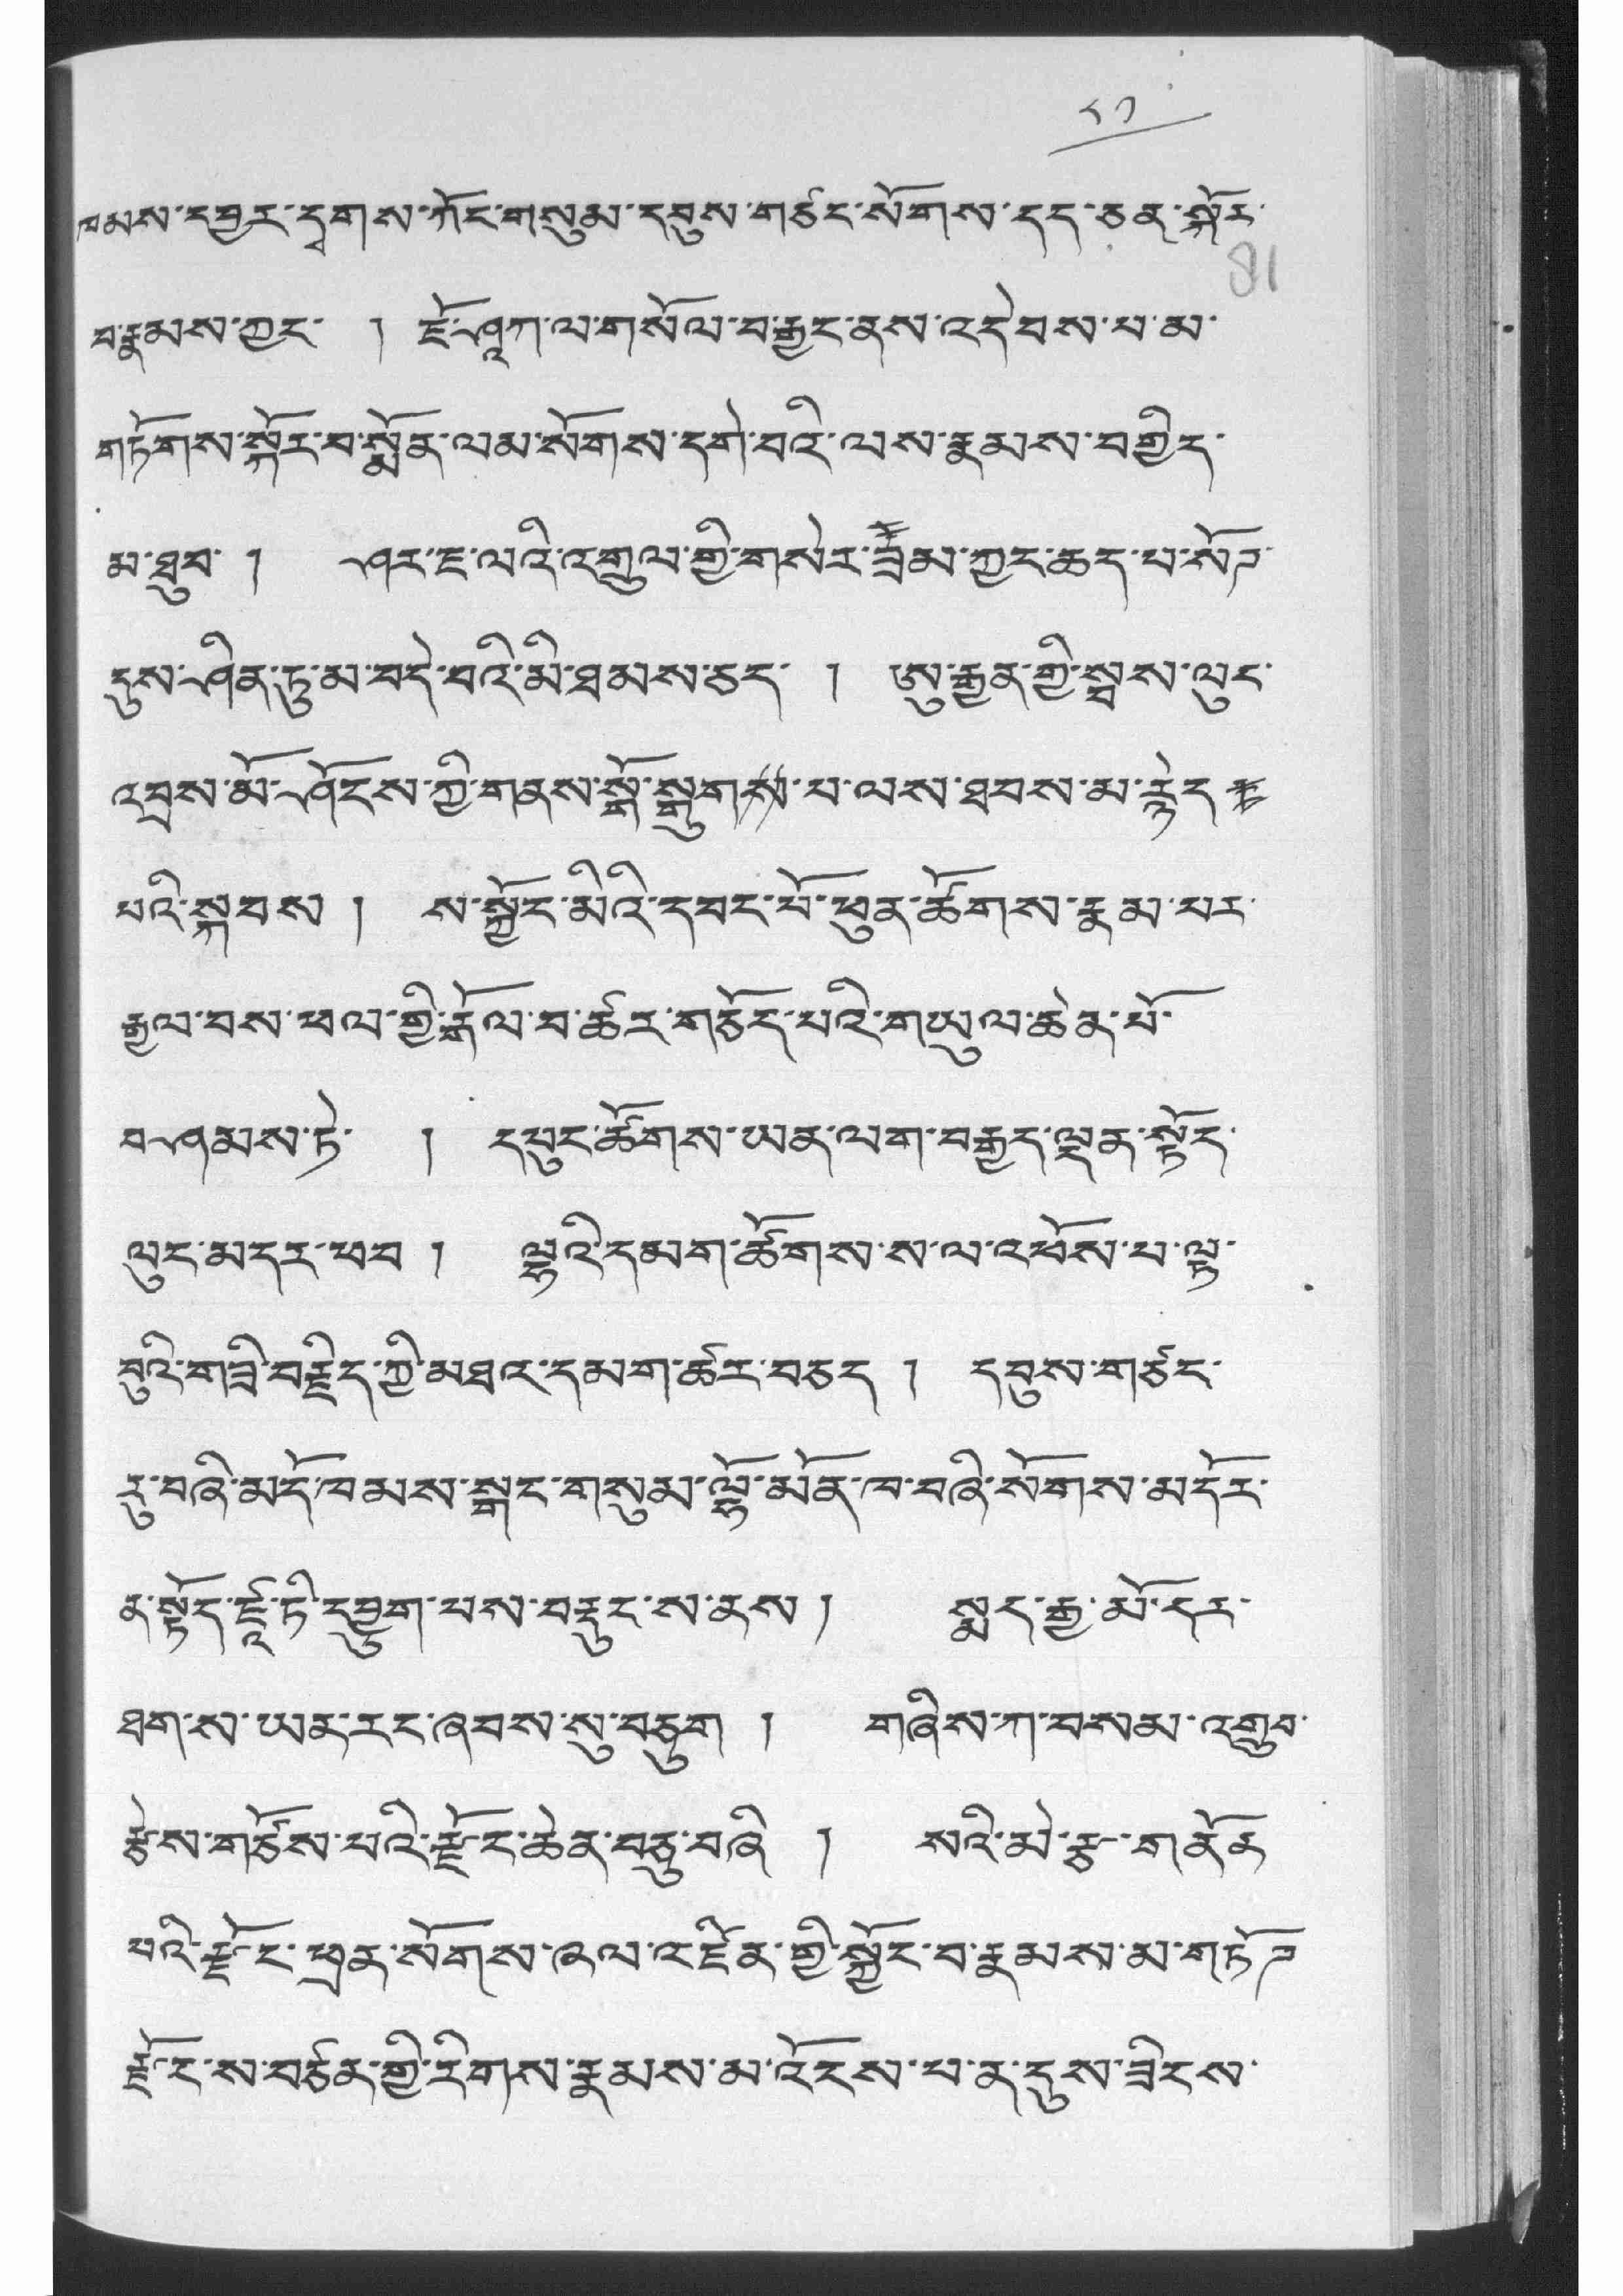 ༨༡
ཁམས་དབྱར་དྭགས་ཀོང་གསུམ་དབུས་གཙང་སོགས་དད་ཅན་སྐོར་
81
བ་རྣམས་ཀྱང་ ། ཇོ་ཤཱཀ་ལ་གསོལ་བ་རྒྱང་ནས་འདེབས་པ་མ་
གཏོགས་སྐོར་བ་སྨོན་ལམ་སོགས་དགེ་བའི་ལས་རྣམས་བགྱིད་
མ་ཐུབ་ ། ཤར་ཇ་ལའི་འགྲུལ་གྱི་གསེར་ཟློམ་ཀྱང་ཆད་པ་སོང་
དུས་ཤིན་ཏུ་མ་བདེ་བའི་མི་ཐམས་ཅད་ ། ཨུ་རྒྱན་གྱི་སྦས་ལུང་
འབྲས་མོ་ཤོངས་ཀྱི་གནས་སྒོ་སྒྲུག་པ་ལས་ཐབས་མ་རྙེད་
པའི་སྐབས ། ས་སྐྱོང་མིའི་དབང་པོ་ཕུན་ཚོགས་རྣམ་པར་
རྒྱལ་བས་ཕལ་གྱི་རྒོལ་བ་ཚར་གཅོད་པའི་གཡུལ་ཆེན་པོ་
བཤམས་ཏེ་ ། དཔུང་ཚོགས་ཡན་ལག་བརྒྱད་ལྡན་སྟོད་
ལུང་མདར་ཕབ ། ལྷའི་དམག་ཚོགས་ས་ལ་འཕོས་པ་ལྟ་
བུའི་གཟི་བརྗིད་ཀྱི་མཐར་དམག་ཚར་བཅད ། དབུས་གཙང་
རུ་བཞི་མདོ་ཁམས་སྒང་གསུམ་ལྷོ་མོན་ཁ་བཞི་སོགས་མདོར་
ན་སྟོད་ཛཱོ་ཏི་དབྱུག་པས་བརྡུང་ས་ནས ། སྨད་རྒྱ་མོ་དར་
ཐག་ས་ཡན་རང་ཞབས་སུ་བཅུག ། གཞིས་ཀ་བསམ་འགྲུབ་
རྩེས་གཙོས་པའི་རྫོང་ཆེན་བཅུ་བཞི ། སའི་མེ་རྩ་གནོན
པའི་རྫོང་ཕྲན་སོགས་ཞལ་འཛིན་གྱི་སྐྱོང་བ་རྣམས་མ་གཏོང་
རྫོང་ས་བཙན་གྱི་རིགས་རྣམས་མ་འོངས་པ་ན་དུས་ཟིངས་